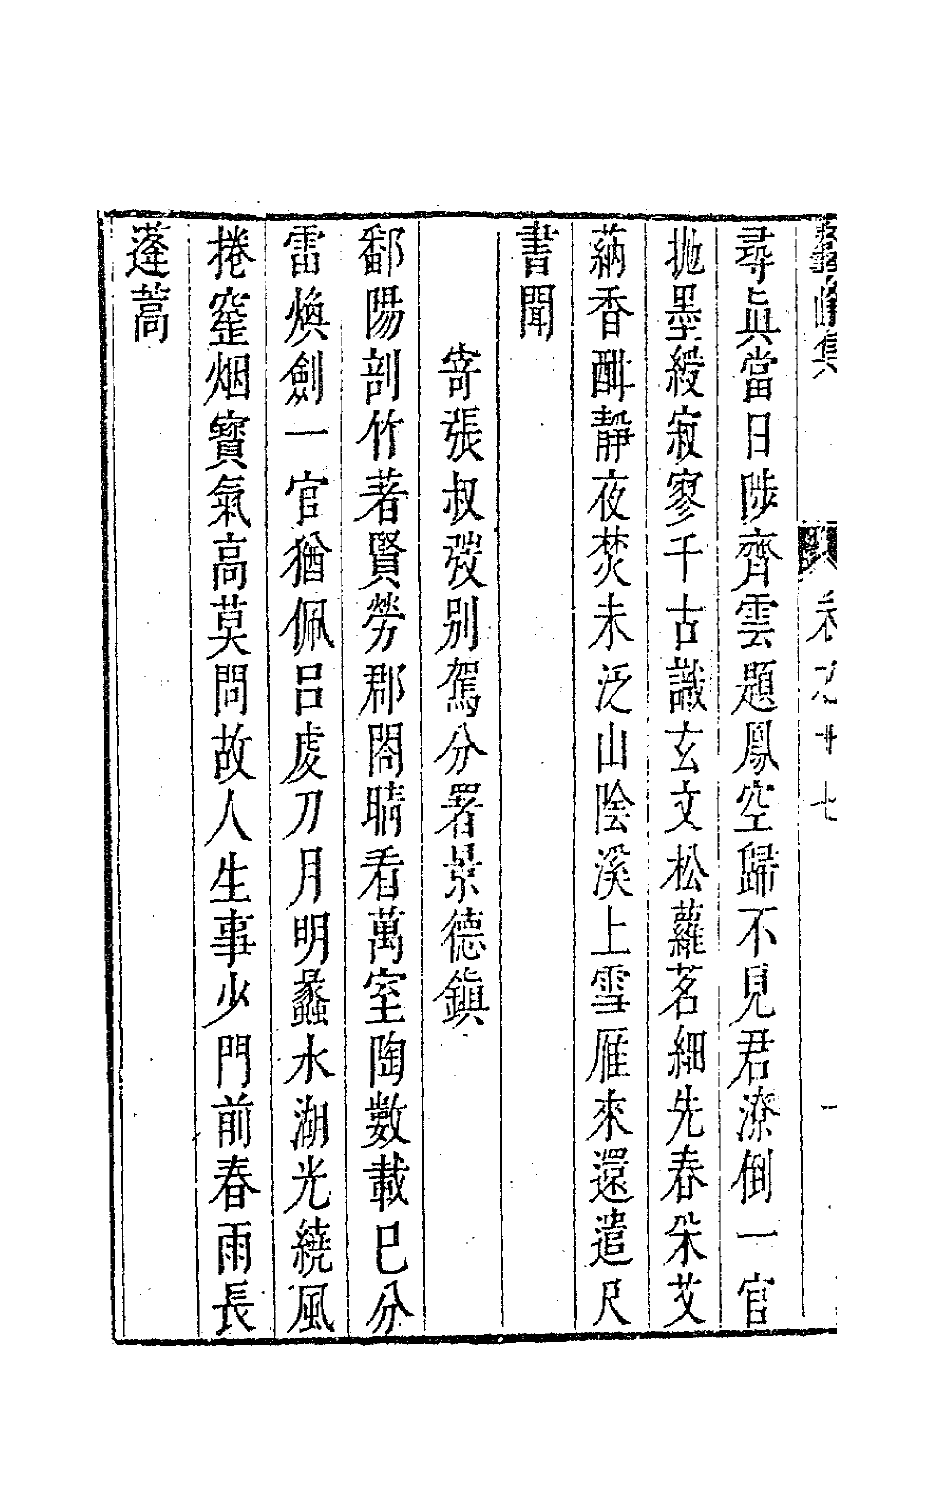 集 卷之十七
尋眞當日陟齊雲題鳳空歸不見君潦倒一官
拋墨綬寂寥千古識玄文松蘿茗細先春朵艾
蒳香酣靜夜焚未泛山陰溪上雪雁來還遣尺
書聞
寄張叔弢別駕分署景德鎮
鄱陽剖竹著賢勞郡閣晴看萬室陶數載已分
雷煥劍一官猶佩呂虔刀月明蠡水湖光繞風
捲窰烟寶氣高莫問故人生事少門前春雨長
蓬蒿